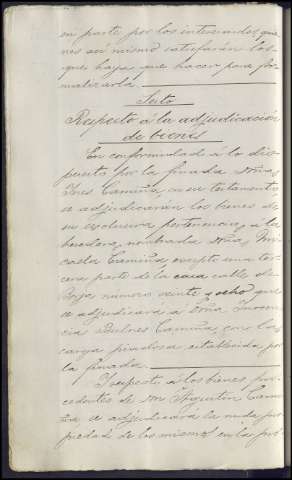 en parte por los interesados, que
nes asi mismo satisfarán los
que haya que hacer para for
malizarla.
Sesto
Respecto á la adjudicación
de bienes
En conformidad á lo dis
puesto por la finada Doña
Ines Camiña en su testamento
se adjudicarán los bienes de
su esclusiva pertenencia á la
heredera nombrada Doña
Camiña escepto una ter
cera parte de la casa calle de
número veinte y ocho que
se adjudicará á Doña Inocen
cia Camiña con la
carga piadosa establecida por
la finada.
Respecto á los bienes pro
cedentes de Dn Agustin Cami
ña se adjudicará la nuda pro
piedad de los mismos en la pro